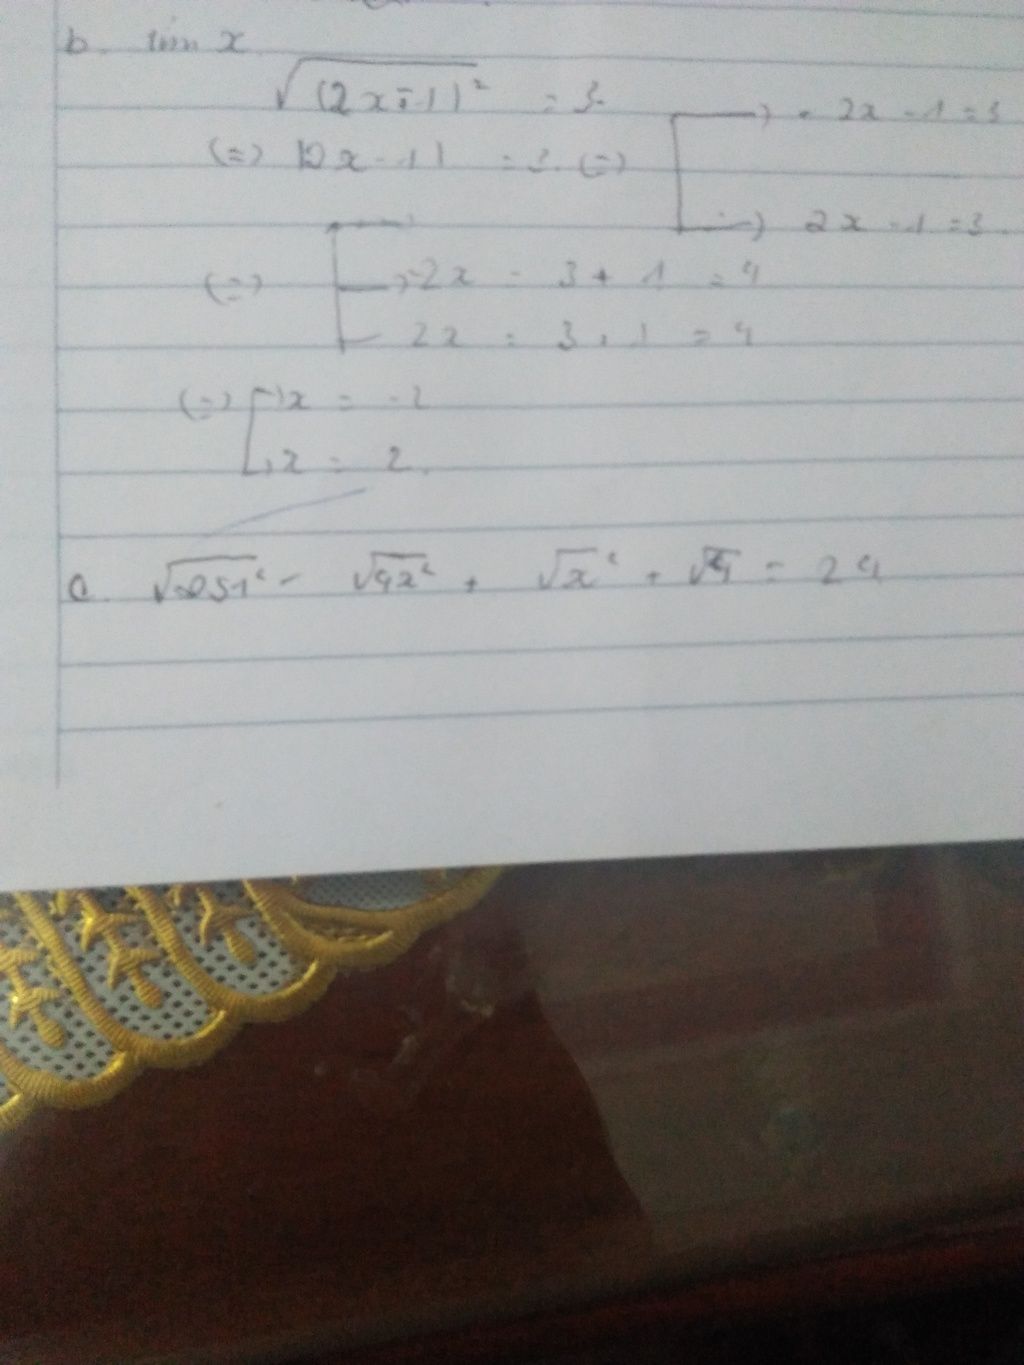 b. tìm x
√(2x-1)² = 3.
(=) |2x-1| = 3 (=) [ → - 2x - 1 = 3
→ 2x - 1 = 3
(=) [ → -2x = 3 + 1 = 4
2x = 3 + 1 = 4
(=) [ → x = -2
→ x = 2.
c. - √4x² + √x² + √4 = 24